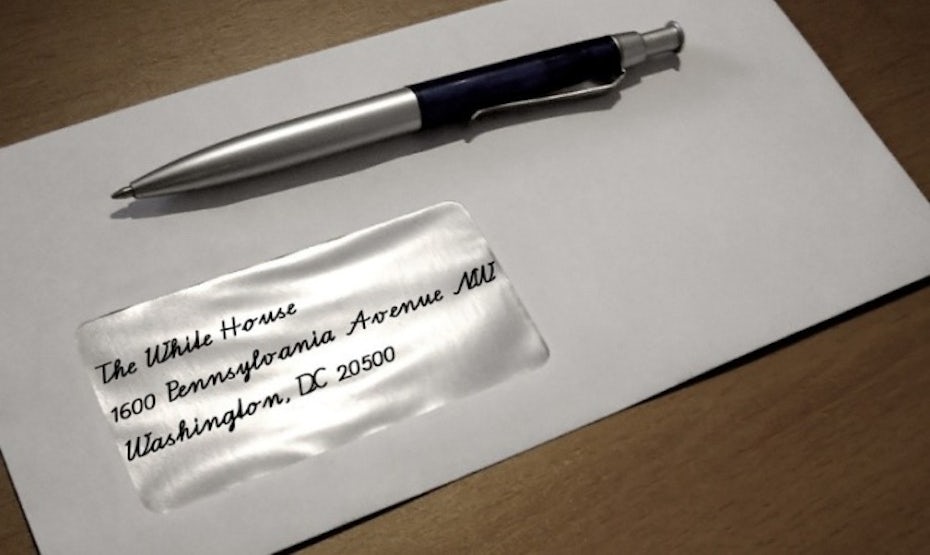 The White House
1600 Pennsylvania Avenue NW
Washington, DC 20500